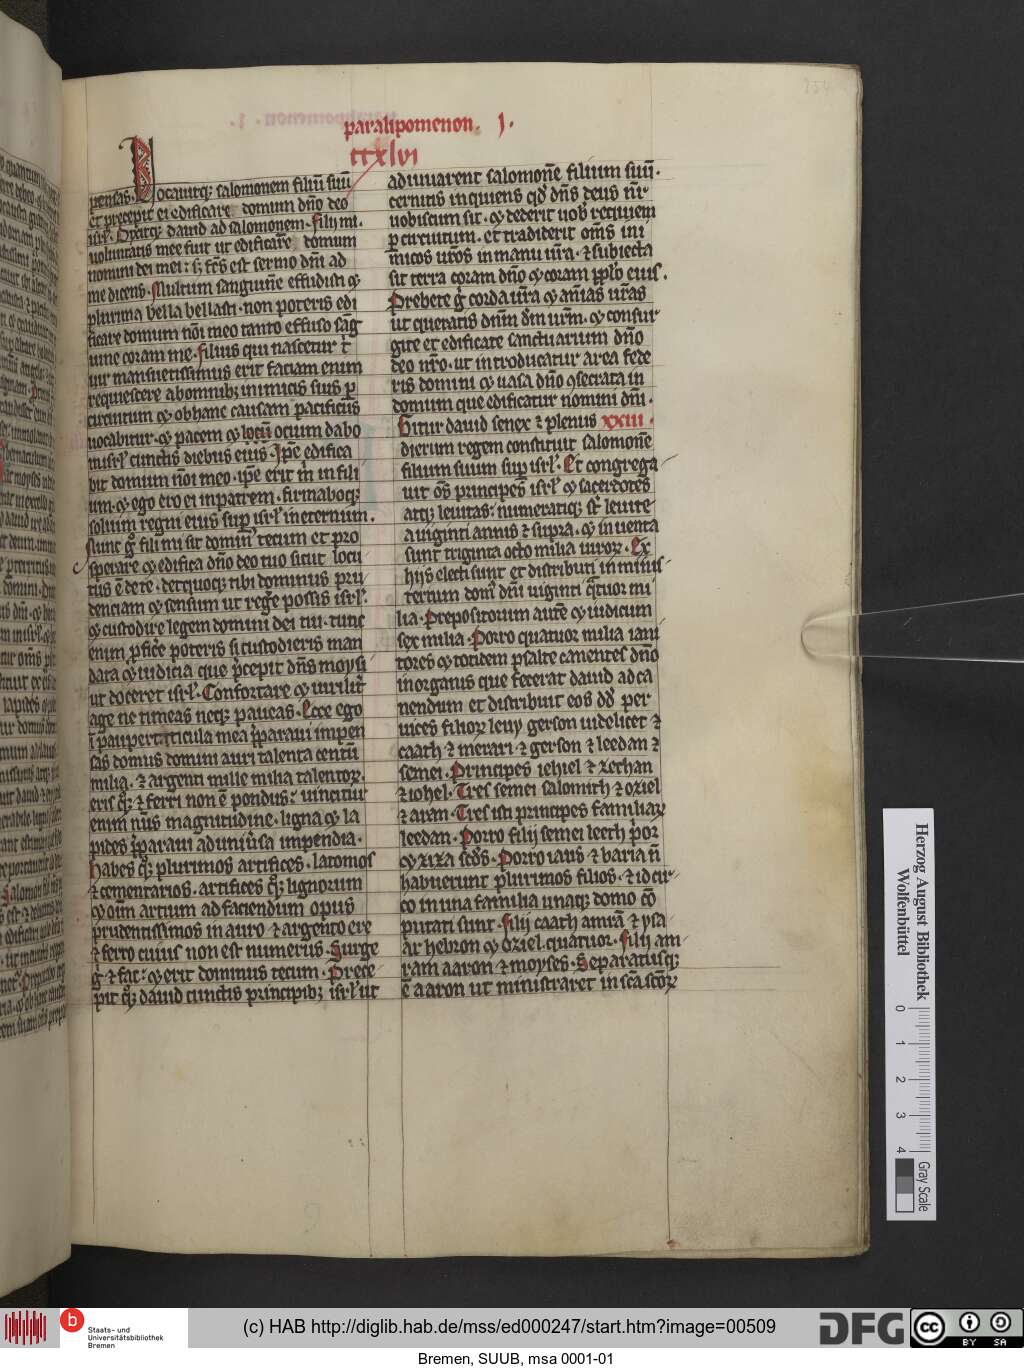 paralipomenon. I.
ccxlvi
pensas. Vocauitq; salomonem filiũ suũ
et precepit ei edificare domum dño deo
isrl'. Dixitq; dauid ad salomonem. Fili mi.
uoluntatis mee fuit ut edificare domum
nomini dei mei: s; fcs est sermo dñi ad
me dicens. Multum sanguinẽ effudisti et
plurima bella bellasti. non poteris edi
ficare domum noĩ meo tanto effuso sãg
uine coram me. Filius qui nascetur t'
uir mansuetissimus erit faciam enim
requiescere ab omnib; inimicis suis p
circuitum et obhanc causam pacificus
uocabitur. et pacem et ocium dabo
in isrl' cunctis diebus eius. Ipse edifica
bit domum noĩ meo. ipse erit m in fili
um. et ego ero ei in patrem. firmaboq;
solium regni eius sup isrl' in eternum.
Nunc g fili mi sit domin' tecum et pro
sperare et edifica dño deo tuo sicut locu
tus ẽ de te. detquoq; tibi dominus pru
denciam et sensum ut rege possis isrl'.
et custodire legem domini dei tui. tunc
enim pficẽ poteris si custodieris man
data et iudicia que pcepit dñs moysi
ut doceret isrl'. Confortare et uirilit'
age ne timeas neq; paueas. Ecce ego
ĩ paupertaticula mea pparaui impen
sas domus domini auri talenta centũ
milia. et argenti mille milia talentor.
eris q; et ferri non ẽ pondus: uincitur
enim nũs magnitudine. ligna et la
pides pparaui ad uniũsa impendia.
Habes q; plurimos artifices. latomos
et cementarios. artifices q; lignorum
et oĩm artium ad faciendum opus
prudentissimos in auro et argento ere
et ferro cuius non est numerus. Surge
g et fac: et erit dominus tecum. Prece
pit q; dauid cunctis principib; isrl' ut
adiuuarent salomonẽ filium suũ.
cernitis inquiens qd dñs deus ñr
uobiscum sit. et dederit uob requiem
p circuitum. et tradiderit oms ini
micos uros in manu ura. et subiecta
sit terra coram dño et coram pplo eius.
Prebete g corda ura et añias uras
ut queratis dnm dm urm. et consur
gite et edificate sanctuarium dño
deo nro. ut introducatur arca fede
ris domini et uasa dño 9secrata in
domum que edificatur nomini dñi.
Gitur dauid senex et plenus xxiii.
dierum regem constituit salomonẽ
filium suum sup isrl'. Et congrega
uit oẽs principes isrl' et sacerdotes
atq; leuitas: numeratiq; st leuite
a uiginti annis et supra. et inuenta
sunt triginta octo milia uiror. Ex
hijs electi sunt et distributi in minis
terium dom' dñi uiginti qtuor mi
lia. Prepositorum aute et iudicum
sex milia. Porro quatuor milia iani
tores et totidem psalte canentes dño
in organis que fecerat dauid ad ca
nendum et distribuit eos dd per
uices filior leuy gerson uidelicet et
caath et merari. et gerson et leedan et
semei. Principes iehiel et zethan
et iohel. Tres semei salomith et oziel
et aram. Tres isti principes familiar
leedan. Porro filij semei leeth por
et ziza scds. Porro iaus et baria ñ
habuerunt plurimos filios. et idcir
co in una familia unaq; domo cõ
putati sunt. Filij caath amrã et ysa
ar hebron et oziel. quatuor. Filij am
ram aaron et moyses. Separatusq;
ẽ aaron ut ministraret in scã scõr
Herzog August Bibliothek
Wolfenbüttel
0 1 2 3 4
Gray Scale
b
Staats- und
Universitätsbibliothek
Bremen
(c) HAB http://diglib.hab.de/mss/ed000247/start.htm?image=00509
DFG
cc
BY SA
Bremen, SUUB, msa 0001-01